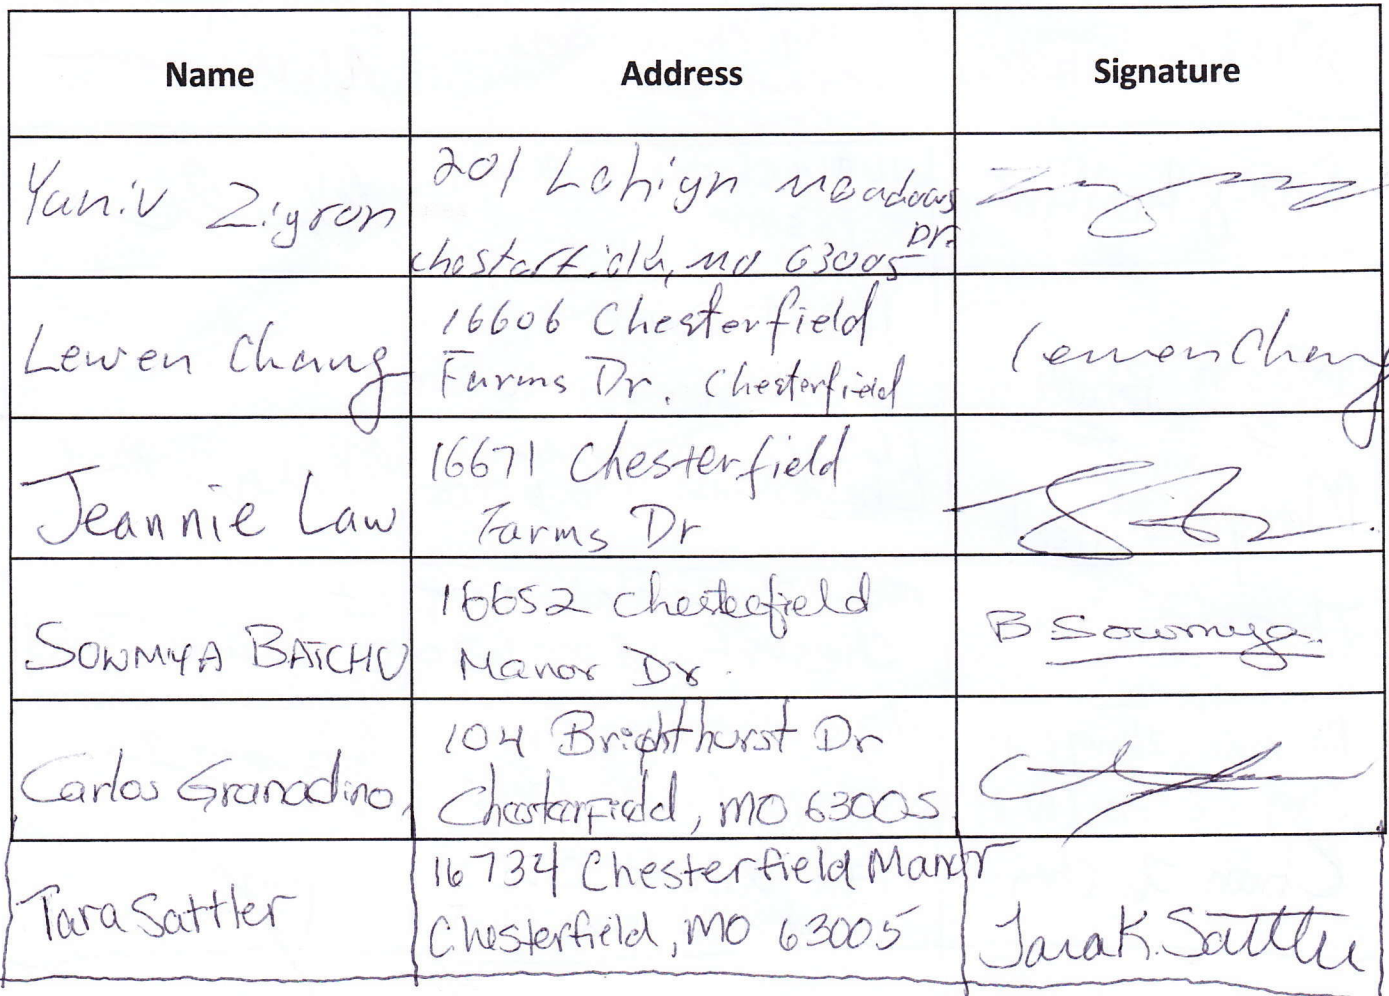 Name Address Signature
Yaniv Zigron 201 Lehigh Meadows
Dr.
Chesterfield, MO 63005
Lewen Chang 16606 Chesterfield Lewen Chang
Farms Dr. Chesterfield
Jeannie Law 16671 Chesterfield
Farms Dr
SOWMYA BATCHU 16652 Chesterfield B Sowmya.
Manor Dr.
Carlos Granadino, 104 Brighthurst Dr
Chesterfield, MO 63005
Tara Sattler 16734 Chesterfield Manor Tara K. Sattler
Chesterfield, MO 63005